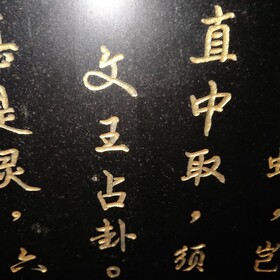 ，岂
直中取，须
文王占卦。
是灵，六